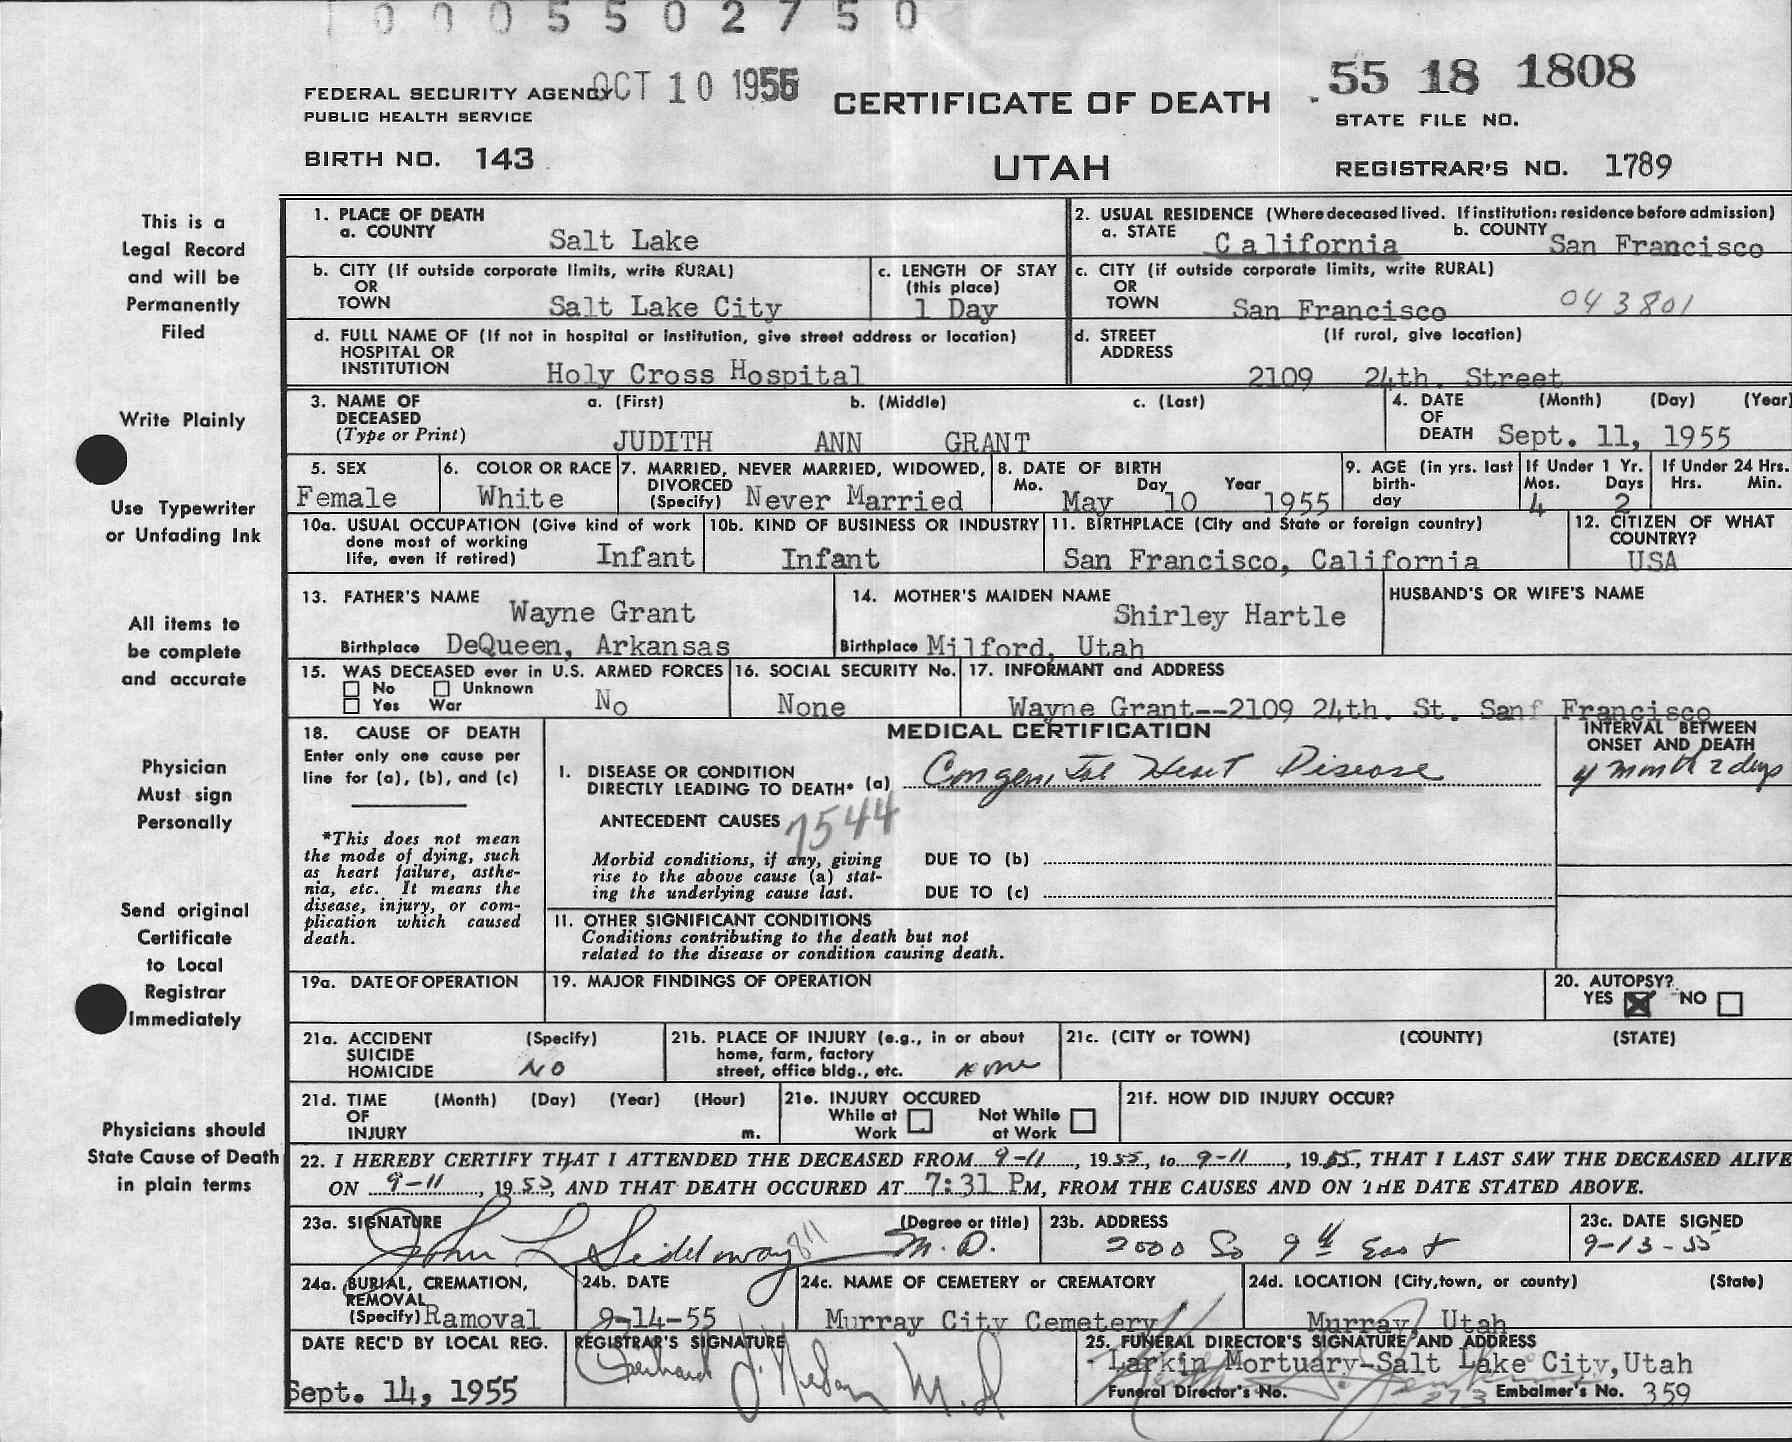 0 0 0 5 5 0 2 7 5 0
FEDERAL SECURITY AGENCY OCT 10 1955
PUBLIC HEALTH SERVICE
BIRTH NO. 143
CERTIFICATE OF DEATH
UTAH
55 18 1808
STATE FILE NO.
REGISTRAR'S NO. 1789
This is a
Legal Record
and will be
Permanently
Filed
Write Plainly
Use Typewriter
or Unfading Ink
All items to
be complete
and accurate
Physician
Must sign
Personally
Send original
Certificate
to Local
Registrar
Immediately
Physicians should
State Cause of Death
in plain terms
1. PLACE OF DEATH
a. COUNTY Salt Lake
2. USUAL RESIDENCE (Where deceased lived. If institution: residence before admission)
a. STATE California b. COUNTY San Francisco
b. CITY (If outside corporate limits, write RURAL)
OR
TOWN Salt Lake City
c. LENGTH OF STAY
(this place)
1 Day
c. CITY (if outside corporate limits, write RURAL)
OR
TOWN San Francisco 043801
d. FULL NAME OF (If not in hospital or institution, give street address or location)
HOSPITAL OR
INSTITUTION Holy Cross Hospital
d. STREET (If rural, give location)
ADDRESS
2109 24th. Street
3. NAME OF a. (First) b. (Middle) c. (Last)
DECEASED
(Type or Print) JUDITH ANN GRANT
4. DATE (Month) (Day) (Year)
OF
DEATH Sept. 11, 1955
5. SEX
Female
6. COLOR OR RACE
White
7. MARRIED, NEVER MARRIED, WIDOWED,
DIVORCED
(Specify) Never Married
8. DATE OF BIRTH
Mo. Day Year
May 10 1955
9. AGE (in yrs. last
birth-
day
If Under 1 Yr.
Mos. Days
4 2
If Under 24 Hrs.
Hrs. Min.
10a. USUAL OCCUPATION (Give kind of work
done most of working
life, even if retired) Infant
10b. KIND OF BUSINESS OR INDUSTRY
Infant
11. BIRTHPLACE (City and State or foreign country)
San Francisco, California
12. CITIZEN OF WHAT
COUNTRY?
USA
13. FATHER'S NAME Wayne Grant
Birthplace DeQueen, Arkansas
14. MOTHER'S MAIDEN NAME Shirley Hartle
Birthplace Milford, Utah
HUSBAND'S OR WIFE'S NAME
15. WAS DECEASED ever in U.S. ARMED FORCES
No Unknown
Yes War No
16. SOCIAL SECURITY No.
None
17. INFORMANT and ADDRESS
Wayne Grant--2109 24th. St. Sanf Francisco
18. CAUSE OF DEATH
Enter only one cause per
line for (a), (b), and (c)
*This does not mean
the mode of dying, such
as heart failure, asthe-
nia, etc. It means the
disease, injury, or com-
plication which caused
death.
MEDICAL CERTIFICATION
INTERVAL BETWEEN
ONSET AND DEATH
I. DISEASE OR CONDITION
DIRECTLY LEADING TO DEATH* (a) Congenital Heart Disease 4 month 2 days
ANTECEDENT CAUSES 7544
Morbid conditions, if any, giving
rise to the above cause (a) stat-
ing the underlying cause last.
DUE TO (b)
DUE TO (c)
II. OTHER SIGNIFICANT CONDITIONS
Conditions contributing to the death but not
related to the disease or condition causing death.
19a. DATE OF OPERATION
19. MAJOR FINDINGS OF OPERATION
20. AUTOPSY?
YES NO
21a. ACCIDENT (Specify)
SUICIDE
HOMICIDE NO
21b. PLACE OF INJURY (e.g., in or about
home, farm, factory
street, office bldg., etc. none
21c. (CITY or TOWN) (COUNTY) (STATE)
21d. TIME (Month) (Day) (Year) (Hour)
OF
INJURY m.
21e. INJURY OCCURED
While at Work Not While at Work
21f. HOW DID INJURY OCCUR?
22. I HEREBY CERTIFY THAT I ATTENDED THE DECEASED FROM 9-11, 1955, to 9-11, 1955, THAT I LAST SAW THE DECEASED ALIVE
ON 9-11, 1955, AND THAT DEATH OCCURED AT 7:31 PM, FROM THE CAUSES AND ON THE DATE STATED ABOVE.
23a. SIGNATURE (Degree or title)
John L M.D.
23b. ADDRESS
2000 So 9th East
23c. DATE SIGNED
9-13-55
24a. BURIAL, CREMATION,
REMOVAL
(Specify) Ramoval
24b. DATE
9-14-55
24c. NAME OF CEMETERY or CREMATORY
Murray City Cemetery
24d. LOCATION (City, town, or county) (State)
Murray, Utah
DATE REC'D BY LOCAL REG.
Sept. 14, 1955
REGISTRAR'S SIGNATURE
25. FUNERAL DIRECTOR'S SIGNATURE AND ADDRESS
Larkin Mortuary-Salt Lake City, Utah
Funeral Director's No. 273 Embalmer's No. 359